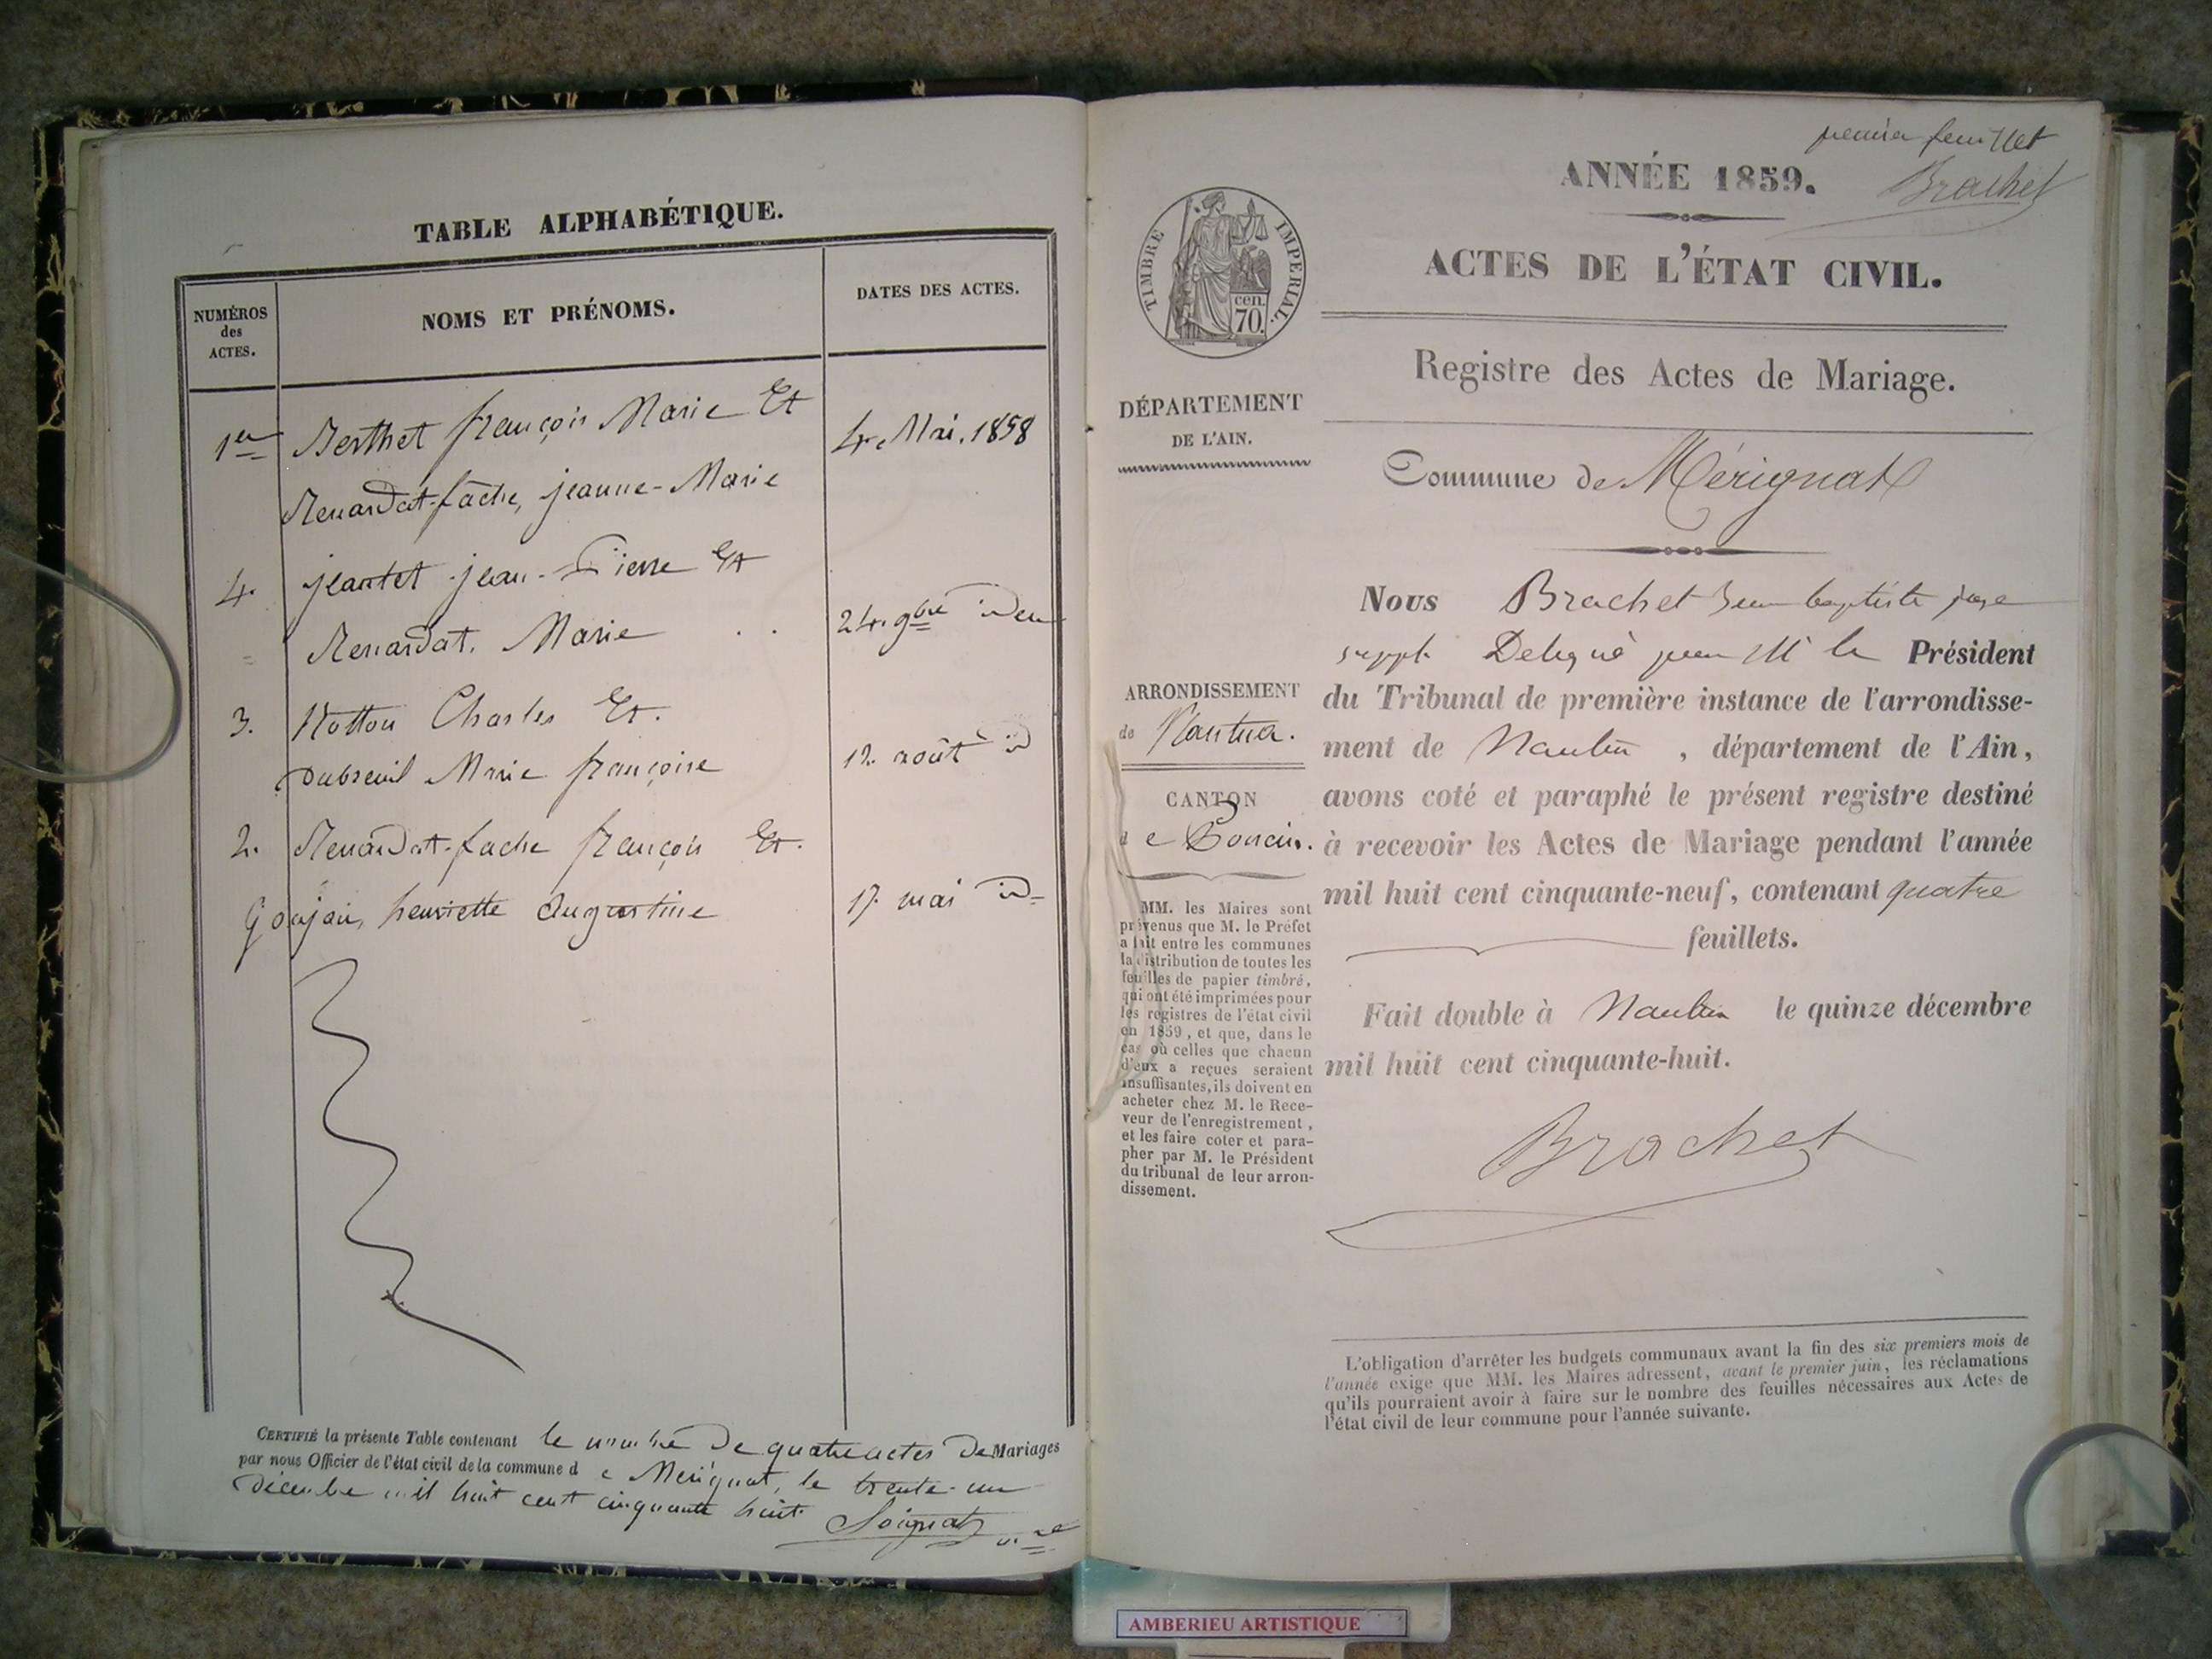 TABLE ALPHABÉTIQUE.
NUMÉROS
des
ACTES.
NOMS ET PRÉNOMS.
DATES DES ACTES.
1er Berthet françois Marie Et 4. Mai. 1858
Renardat-fache, jeanne-Marie
4. jeantet jean-Pierre Et
Renardat. Marie . . 24. 9bre idem
3. Notton Charles Et.
Dubreuil Marie françoise 12. août id
2. Renardat-fache françois Et.
Goujon, henriette Augustine 17. mai id
CERTIFIÉ la présente Table contenant le nombre de quatre actes De Mariages
par nous Officier de l'état civil de la commune de Mérignat, le trente-un
Décembre mil huit cent cinquante huit.
premier feuillet
Brachet
ANNÉE 1859.
ACTES DE L'ÉTAT CIVIL.
TIMBRE IMPERIAL.
cen.
70.
Registre des Actes de Mariage.
DÉPARTEMENT
DE L'AIN.
Commune de Mérignat
Nous Brachet Jean baptiste juge
suppt. Délégué par Mr le Président
du Tribunal de première instance de l'arrondisse-
ment de Nantua, département de l'Ain,
avons coté et paraphé le présent registre destiné
à recevoir les Actes de Mariage pendant l'année
mil huit cent cinquante-neuf, contenant quatre
feuillets.
Fait double à Nantua le quinze décembre
mil huit cent cinquante-huit.
Brachet
ARRONDISSEMENT
de Nantua.
CANTON
de Poncin.
MM. les Maires sont
prévenus que M. le Préfet
a fait entre les communes
la distribution de toutes les
feuilles de papier timbré,
qui ont été imprimées pour
les registres de l'état civil
en 1859, et que, dans le
cas où celles que chacun
d'eux a reçues seraient
insuffisantes, ils doivent en
acheter chez M. le Rece-
veur de l'enregistrement,
et les faire coter et para-
pher par M. le Président
du tribunal de leur arron-
dissement.
L'obligation d'arrêter les budgets communaux avant la fin des six premiers mois de
l'année exige que MM. les Maires adressent, avant le premier juin, les réclamations
qu'ils pourraient avoir à faire sur le nombre des feuilles nécessaires aux Actes de
l'état civil de leur commune pour l'année suivante.
AMBERIEU ARTISTIQUE